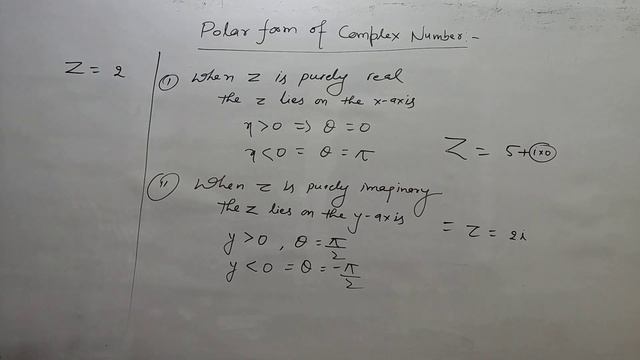 Polar form of Complex Number:-
Z = 2
(i) When z is purely real
the z lies on the x-axis
x>0 => θ = 0
x<0 = θ = π
Z = 5+i×0
(ii) When z is purely imaginary
the z lies on the y-axis
y>0, θ = π/2
y<0 = θ = -π/2
= Z = 2i